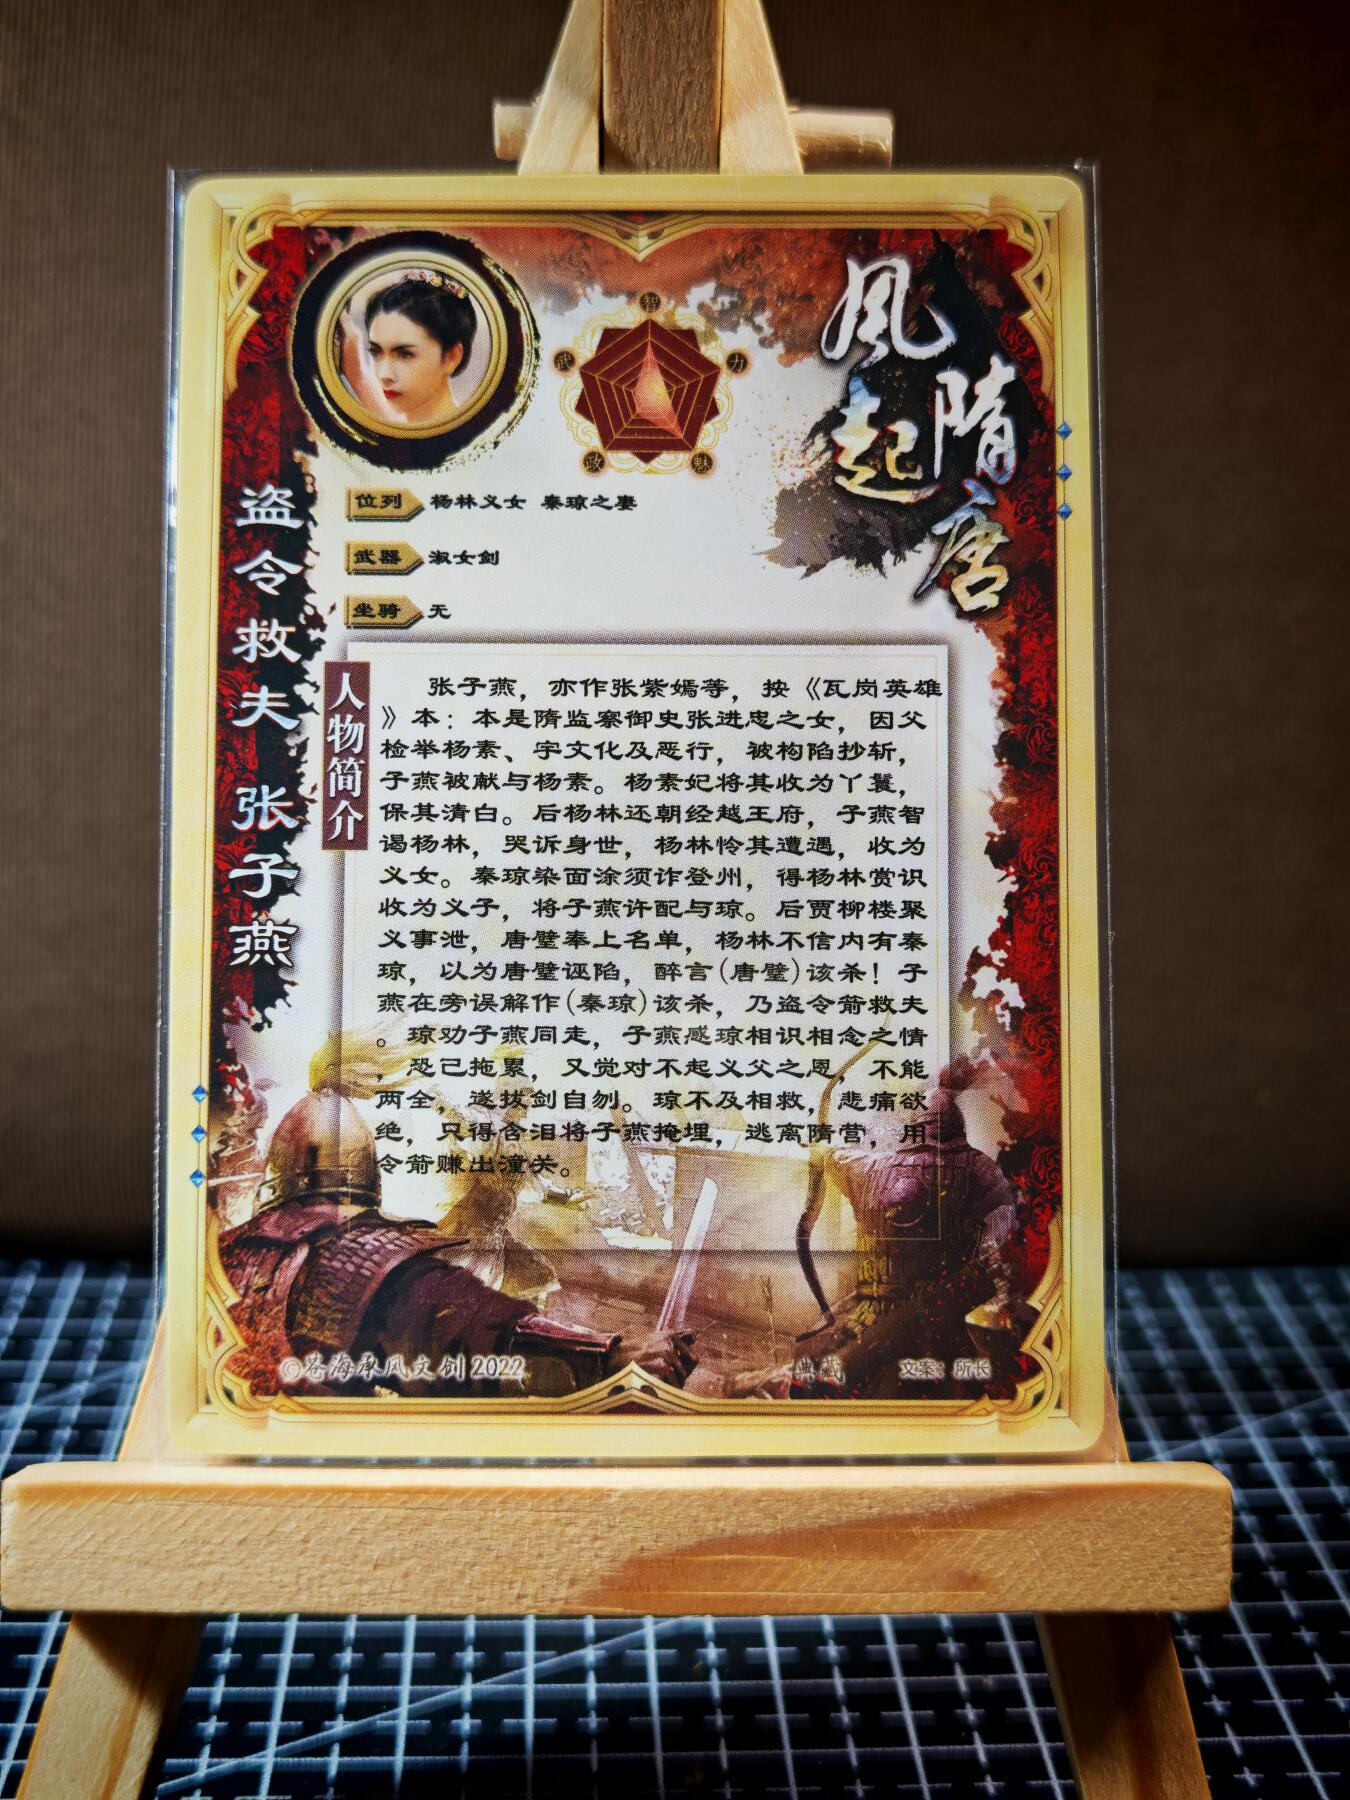 风起
隋唐
智
武
力
政
魅
盗令救夫 张子燕
位列 杨林义女 秦琼之妻
武器 淑女剑
坐骑 无
人物简介
张子燕，亦作张紫嫣等，按《瓦岗英雄
》本：本是隋监察御史张进忠之女，因父
检举杨素、宇文化及恶行，被构陷抄斩，
子燕被献与杨素。杨素妃将其收为丫鬟，
保其清白。后杨林还朝经越王府，子燕智
谒杨林，哭诉身世，杨林怜其遭遇，收为
义女。秦琼染面涂须诈登州，得杨林赏识
收为义子，将子燕许配与琼。后贾柳楼聚
义事泄，唐璧奉上名单，杨林不信内有秦
琼，以为唐璧诬陷，醉言(唐璧)该杀！子
燕在旁误解作(秦琼)该杀，乃盗令箭救夫
。琼劝子燕同走，子燕感琼相识相念之情
，恐己拖累，又觉对不起义父之恩，不能
两全，遂拔剑自刎。琼不及相救，悲痛欲
绝，只得含泪将子燕掩埋，逃离隋营，用
令箭赚出潼关。
©苍海承风文创 2022
典藏
文案：所长